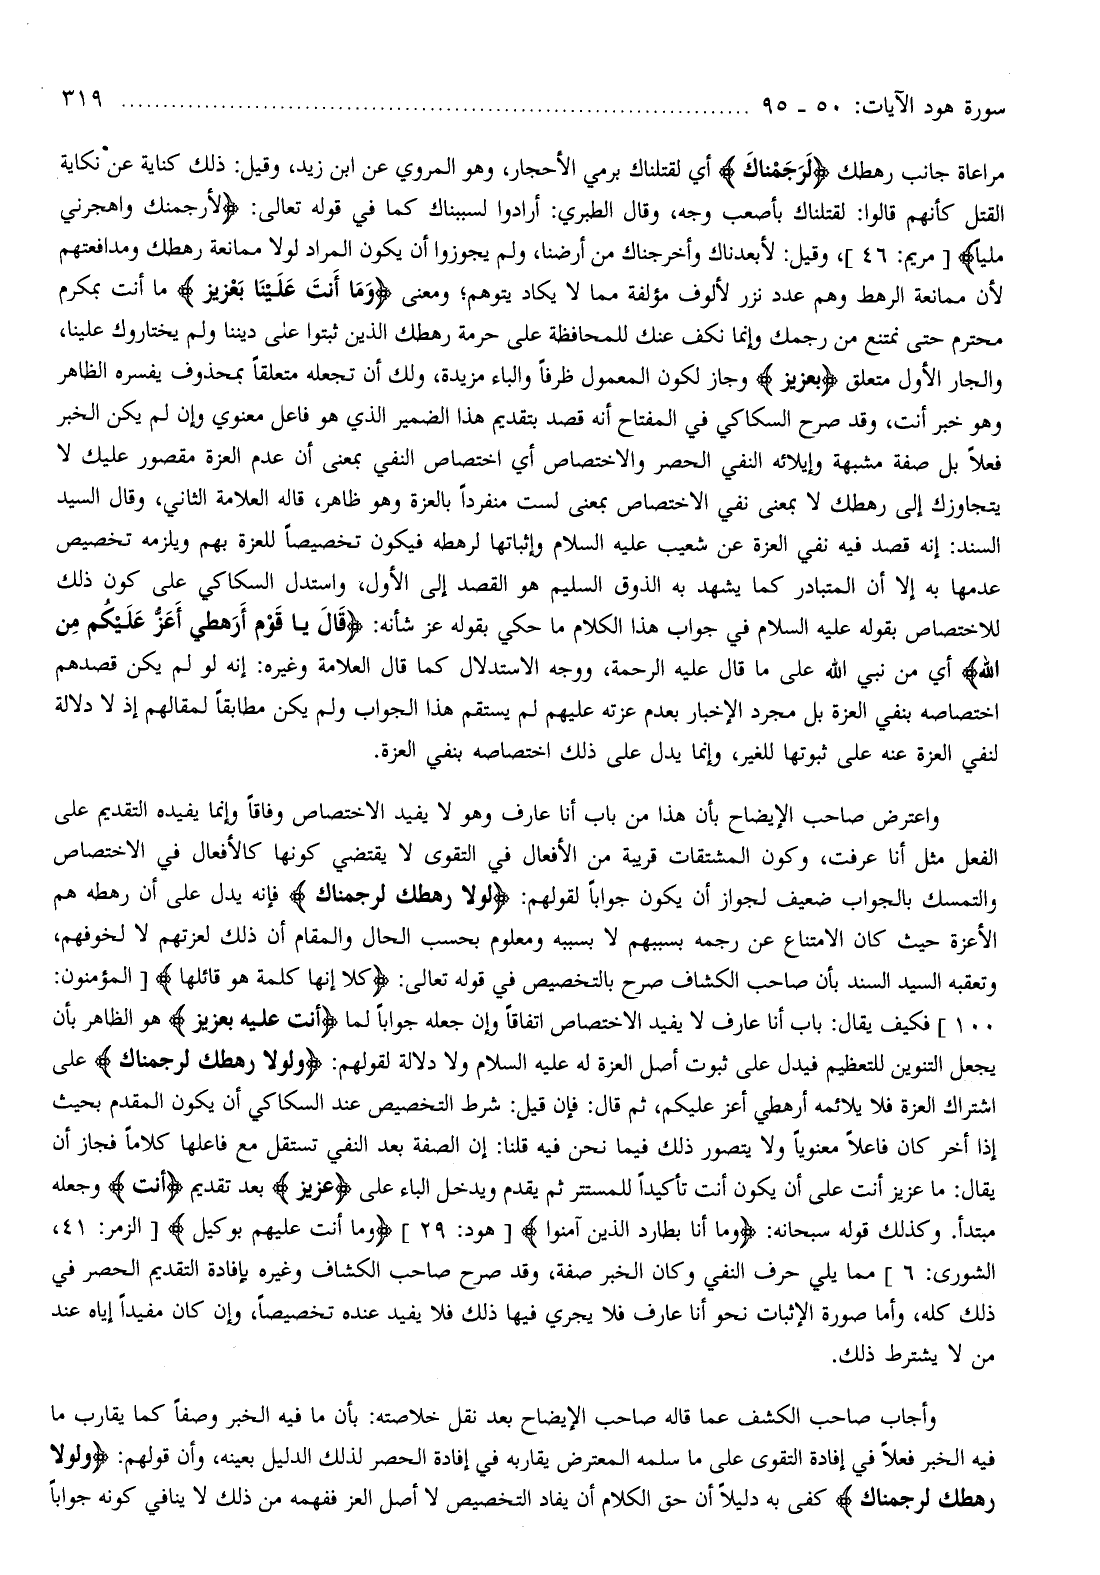 سورة هود الآيات: ٥٠ ـ ٩٥ ........................................................................ ٣١٩
مراعاة جانب رهطك ﴿لَرَجَمْناكَ﴾ أي لقتلناك برمي الأحجار، وهو المروي عن ابن زيد، وقيل: ذلك كناية عن نكاية
القتل كأنهم قالوا: لقتلناك بأصعب وجه، وقال الطبري: أرادوا لسببناك كما في قوله تعالى: ﴿لأرجمنك واهجرني
ملياً﴾ [ مريم: ٤٦ ]، وقيل: لأبعدناك وأخرجناك من أرضنا، ولم يجوزوا أن يكون المراد لولا ممانعة رهطك ومدافعتهم
لأن ممانعة الرهط وهم عدد نزر لألوف مؤلفة مما لا يكاد يتوهم؛ ومعنى ﴿وَمَا أَنتَ عَلَيْنَا بَعْزِيز﴾ ما أنت بمكرم
محترم حتى نمتنع من رجمك وإنما نكف عنك للمحافظة على حرمة رهطك الذين ثبتوا على ديننا ولم يختاروك علينا،
والجار الأول متعلق ﴿بعزيز﴾ وجاز لكون المعمول ظرفاً والباء مزيدة، ولك أن تجعله متعلقاً بمحذوف يفسره الظاهر
وهو خبر أنت، وقد صرح السكاكي في المفتاح أنه قصد بتقديم هذا الضمير الذي هو فاعل معنوي وإن لم يكن الخبر
فعلاً بل صفة مشبهة وإيلائه النفي الحصر والاختصاص أي اختصاص النفي بمعنى أن عدم العزة مقصور عليك لا
يتجاوزك إلى رهطك لا بمعنى نفي الاختصاص بمعنى لست منفرداً بالعزة وهو ظاهر، قاله العلامة الثاني، وقال السيد
السند: إنه قصد فيه نفي العزة عن شعيب عليه السلام وإثباتها لرهطه فيكون تخصيصاً للعزة بهم ويلزمه تخصيص
عدمها به إلا أن المتبادر كما يشهد به الذوق السليم هو القصد إلى الأول، واستدل السكاكي على كون ذلك
للاختصاص بقوله عليه السلام في جواب هذا الكلام ما حكي بقوله عز شأنه: ﴿قَالَ يا قَوْم أَرَهطي أَعَزُّ عَلَيْكُم مِن
الله﴾ أي من نبي الله على ما قال عليه الرحمة، ووجه الاستدلال كما قال العلامة وغيره: إنه لو لم يكن قصدهم
اختصاصه بنفي العزة بل مجرد الإخبار بعدم عزته عليهم لم يستقم هذا الجواب ولم يكن مطابقاً لمقالهم إذ لا دلالة
لنفي العزة عنه على ثبوتها للغير، وإنما يدل على ذلك اختصاصه بنفي العزة.
واعترض صاحب الإيضاح بأن هذا من باب أنا عارف وهو لا يفيد الاختصاص وفاقاً وإنما يفيده التقديم على
الفعل مثل أنا عرفت، وكون المشتقات قريبة من الأفعال في التقوى لا يقتضي كونها كالأفعال في الاختصاص
والتمسك بالجواب ضعيف لجواز أن يكون جواباً لقولهم: ﴿لولا رهطك لرجمناك﴾ فإنه يدل على أن رهطه هم
الأعزة حيث كان الامتناع عن رجمه بسببهم لا بسببه ومعلوم بحسب الحال والمقام أن ذلك لعزتهم لا لخوفهم،
وتعقبه السيد السند بأن صاحب الكشاف صرح بالتخصيص في قوله تعالى: ﴿كلا إنها كلمة هو قائلها﴾ [ المؤمنون:
١٠٠ ] فكيف يقال: باب أنا عارف لا يفيد الاختصاص اتفاقاً وإن جعله جواباً لما ﴿أنت عليه بعزيز﴾ هو الظاهر بأن
يجعل التنوين للتعظيم فيدل على ثبوت أصل العزة له عليه السلام ولا دلالة لقولهم: ﴿ولولا رهطك لرجمناك﴾ على
اشتراك العزة فلا يلائمه أرهطي أعز عليكم، ثم قال: فإن قيل: شرط التخصيص عند السكاكي أن يكون المقدم بحيث
إذا أخر كان فاعلاً معنوياً ولا يتصور ذلك فيما نحن فيه قلنا: إن الصفة بعد النفي تستقل مع فاعلها كلاماً فجاز أن
يقال: ما عزيز أنت على أن يكون أنت تأكيداً للمستتر ثم يقدم ويدخل الباء على ﴿عزيز﴾ بعد تقديم ﴿أنت﴾ وجعله
مبتدأ. وكذلك قوله سبحانه: ﴿وما أنا بطارد الذين آمنوا﴾ [ هود: ٢٩ ] ﴿وما أنت عليهم بوكيل﴾ [ الزمر: ٤١،
الشورى: ٦ ] مما يلي حرف النفي وكان الخبر صفة، وقد صرح صاحب الكشاف وغيره بإفادة التقديم الحصر في
ذلك كله، وأما صورة الإثبات نحو أنا عارف فلا يجري فيها ذلك فلا يفيد عنده تخصيصاً، وإن كان مفيداً إياه عند
من لا يشترط ذلك.
وأجاب صاحب الكشف عما قاله صاحب الإيضاح بعد نقل خلاصته: بأن ما فيه الخبر وصفاً كما يقارب ما
فيه الخبر فعلاً في إفادة التقوى على ما سلمه المعترض يقاربه في إفادة الحصر لذلك الدليل بعينه، وأن قولهم: ﴿ولولا
رهطك لرجمناك﴾ كفى به دليلاً أن حق الكلام أن يفاد التخصيص لا أصل العز ففهمه من ذلك لا ينافي كونه جواباً